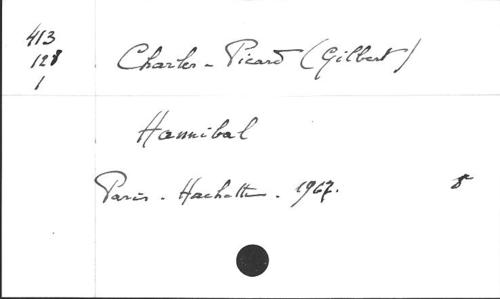 413
128
1
Charles-Picard (Gilbert)
Hannibal
Paris. Hachette. 1967. 8